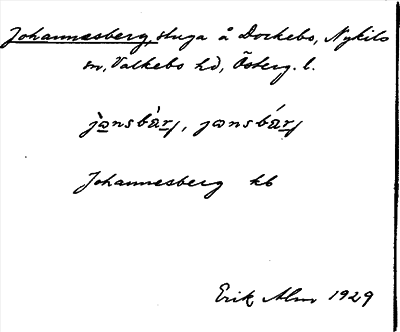 Johannesberg, stuga å Dockebo, Nykils
sn, Valkebo hd, Österg. l.
Johannesberg kb
Erik Alm 1929